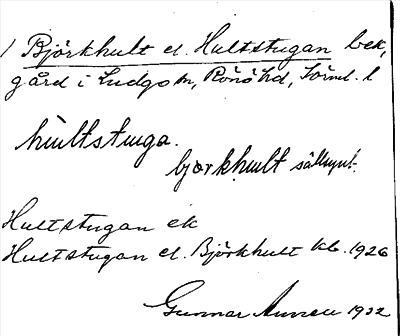 1 Björkhult el. Hultstugan bek,
gård i Ludgo sn, Rönö hd, Söml. l
hultstuga.
bjorkhult sällsynt.
Hultstugan ek
Hultstugan el. Björkhult kb. 1926
Gunnar 1932